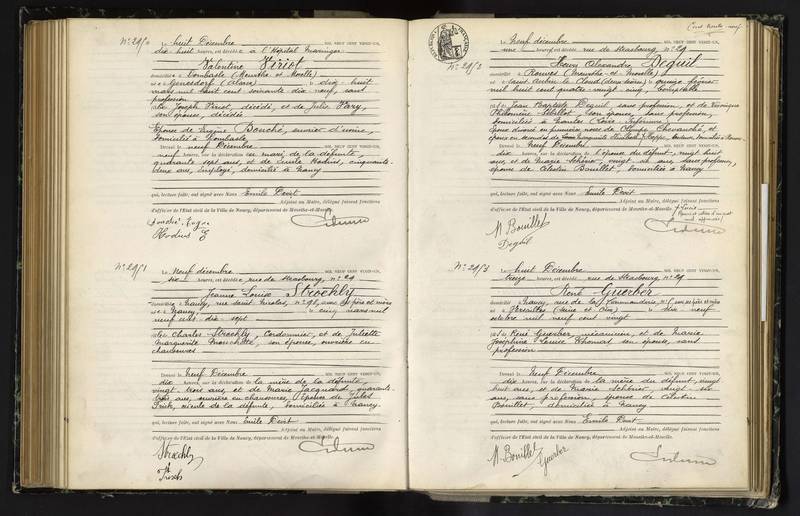 N° 2950
Le huit Décembre MIL NEUF CENT VINGT-UN,
dix huit heures, est décédée à l'Hôpital Maringer
Valentine Viriot
domiciliée à Dombasle (Meurthe et Moselle)
née à (Alsace) le dix huit
mars mil huit cent soixante dix neuf, sans
profession
fille de Joseph Viriot, décédé, et de Julie Hary,
son épouse, décédée
Épouse de Eugène Bouché, ouvrier d'usine,
domicilié à Dombasle
Dressé le neuf Décembre MIL NEUF CENT VINGT-UN,
neuf heures, sur la déclaration de du mari de la défunte,
quarante sept ans, et de Emile Hodus, cinquante
deux ans, employé, domicilié à Nancy
qui, lecture faite, ont signé avec Nous Emile Devit
Adjoint au Maire, délégué faisant fonctions
d'officier de l'Etat civil de la Ville de Nancy, département de Meurthe-et-Moselle.
Hodus E
N° 2951
Le Neuf décembre MIL NEUF CENT VINGT-UN,
six heures, est décédée rue de Strasbourg, n° 29
Jeanne Louise Strochly
domiciliée à Nancy, rue Saint Nicolas, n° 98, avec ses père et mère
née à Nancy, le cinq mars mil
neuf cent dix sept
fille de Charles Strochly, Cordonnier, et de Juliette
Marguerite Mouchette, son épouse, ouvrière en
chaussures
Dressé le neuf Décembre MIL NEUF CENT VINGT-UN,
dix heures, sur la déclaration de la mère de la défunte,
vingt trois ans, et de Marie Jacquard, quarante
trois ans, ouvrière en chaussures, épouse de Jules
tante de la défunte, domiciliées à Nancy.
qui, lecture faite, ont signé avec Nous Emile Devit
Adjoint au Maire, délégué faisant fonctions
d'officier de l'Etat civil de la Ville de Nancy, département de Meurthe-et-Moselle.
Strochly
N° 2952
Le Neuf décembre MIL NEUF CENT VINGT-UN,
une heures, est décédé rue de Strasbourg, n° 29
Henri Alexandre Dequil
domicilié à (Meurthe et Moselle)
né à Saint Aubin le Cloud (deux Sèvres) le quinze février
mil huit cent quatre vingt cinq, Comptable
fils de Jean Baptiste Dequil sans profession, et de Véronique
Philomène Sébillot son épouse, sans profession,
domiciliés à Nantes (Loire Inférieure)
Époux divorcé en premières noces de Olympe Chevauché, et
Dressé le neuf Décembre MIL NEUF CENT VINGT-UN,
dix heures, sur la déclaration de l'épouse du défunt, vingt huit
ans, et de Marie Schérier, vingt six ans, sans profession,
épouse de Celestin Bouillet, domiciliée à Nancy
qui, lecture faite, ont signé avec Nous Emile Devit
Adjoint au Maire, délégué faisant fonctions
d'officier de l'Etat civil de la Ville de Nancy, département de Meurthe-et-Moselle.
M Bouillet
Dequil
N° 2953
Le huit Décembre MIL NEUF CENT VINGT-UN,
treize heures, est décédé rue de Strasbourg, n° 29
René Guerber
domicilié à Nancy, rue de la Commanderie, n° avec ses père et mère
né à Versailles (Seine et Oise) le dix neuf
octobre mil neuf cent vingt
fils de René Guerber, mécanicien, et de Marie
Joséphine Louise son épouse, sans
profession
Dressé le neuf Décembre MIL NEUF CENT VINGT-UN,
dix heures, sur la déclaration de la mère du défunt, vingt
huit ans, et de Marie Schérier, vingt six
ans, sans profession, épouse de Celestin
Bouillet, domiciliées à Nancy
qui, lecture faite, ont signé avec Nous Emile Devit
Adjoint au Maire, délégué faisant fonctions
d'officier de l'Etat civil de la Ville de Nancy, département de Meurthe-et-Moselle.
M. Bouillet
Guerber